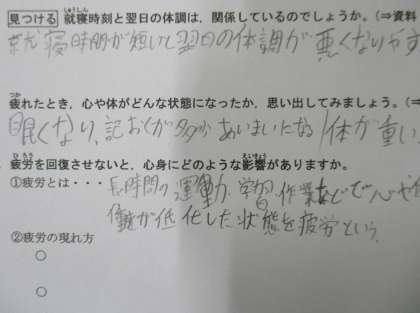 見つける 就寝時刻と翌日の体調は，関係しているのでしょうか。(⇒資料
就寝時間が短いと翌日の体調が悪くなりやす
疲れたとき，心や体がどんな状態になったか，思い出してみましょう。(⇒
眠くなり、記おくが多少あいまいになる/体が重い
疲労を回復させないと，心身にどのような影響がありますか。
①疲労とは・・・長時間の運動、学習、作業などで心や
働が低化した状態を疲労という。
②疲労の現れ方
○
○